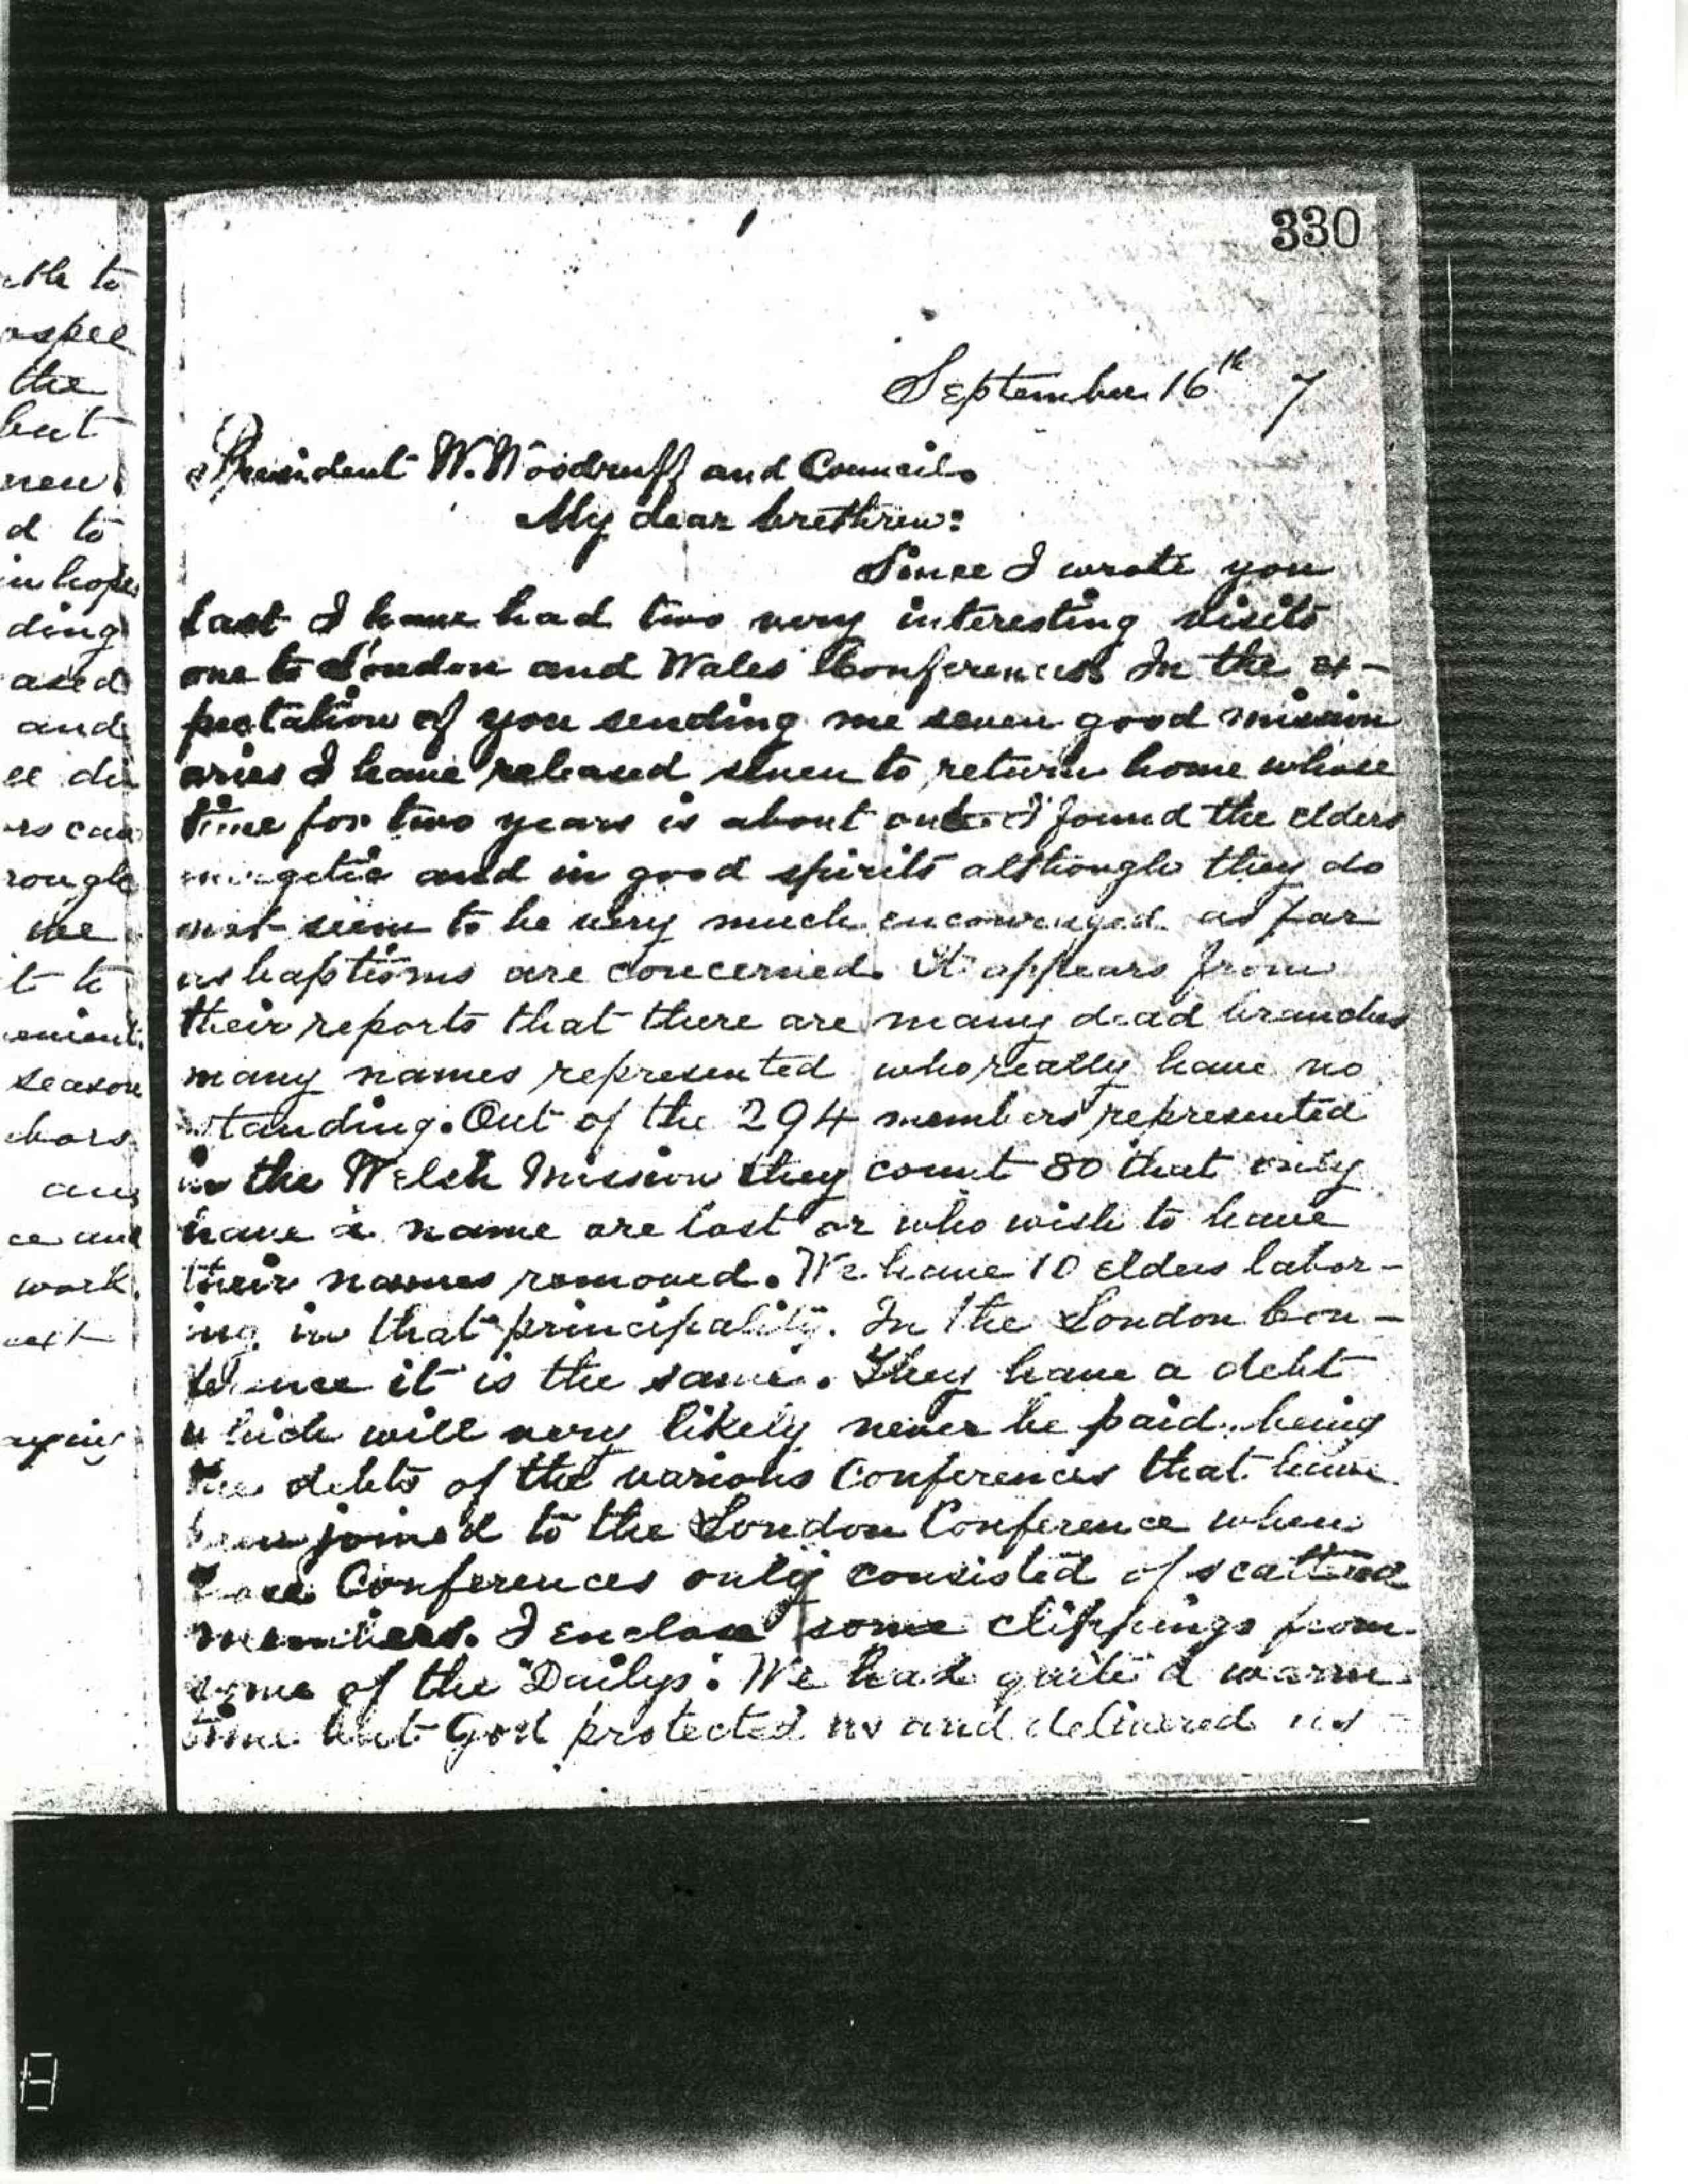 330
September 16th 7
President W. Woodruff and Council.
My dear brethren:
Since I wrote you
last I have had two very interesting visits
one to London and Wales Conferences In the ex-
pectation of you sending me seven good mission
aries I have released seven to return home whose
time for two years is about out. I found the elders
energetic and in good spirits although they do
not seem to be very much encouraged as far
as baptisms are concerned. It appears from
their reports that there are many dead branches
many names represented who really have no
standing. Out of the 294 members represented
in the Welsh Mission they count 80 that only
have a name are lost or who wish to have
their names removed. We have 10 elders labor-
ing in that principality. In the London Con-
ference it is the same. They have a debt
which will very likely never be paid. being
the debts of the various Conferences that have
been joined to the London Conference when
those Conferences only consisted of scattered
members. I enclose some clippings from
some of the "Dailys". We had quite a warm
time but God protected us and delivered us
the
but
new
d to
in hopes
ding
and
rough
me
season
work.